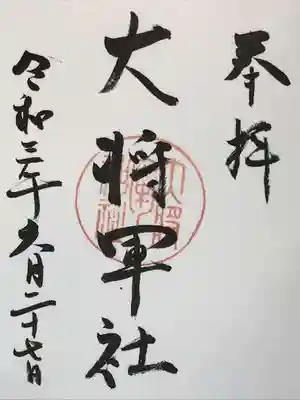 奉拝
大将軍社
令和三年六月二十七日